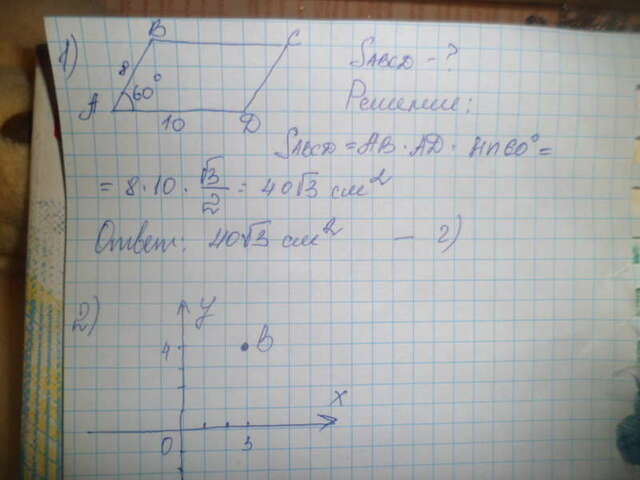 1)
B C
8
60°
A 10 D
SABCD - ?
Решение:
SABCD = AB · AD · sin60° =
= 8 · 10 · √3/2 = 40√3 см²
Ответ: 40√3 см² — 2)
2)
y
4 B
x
0 3